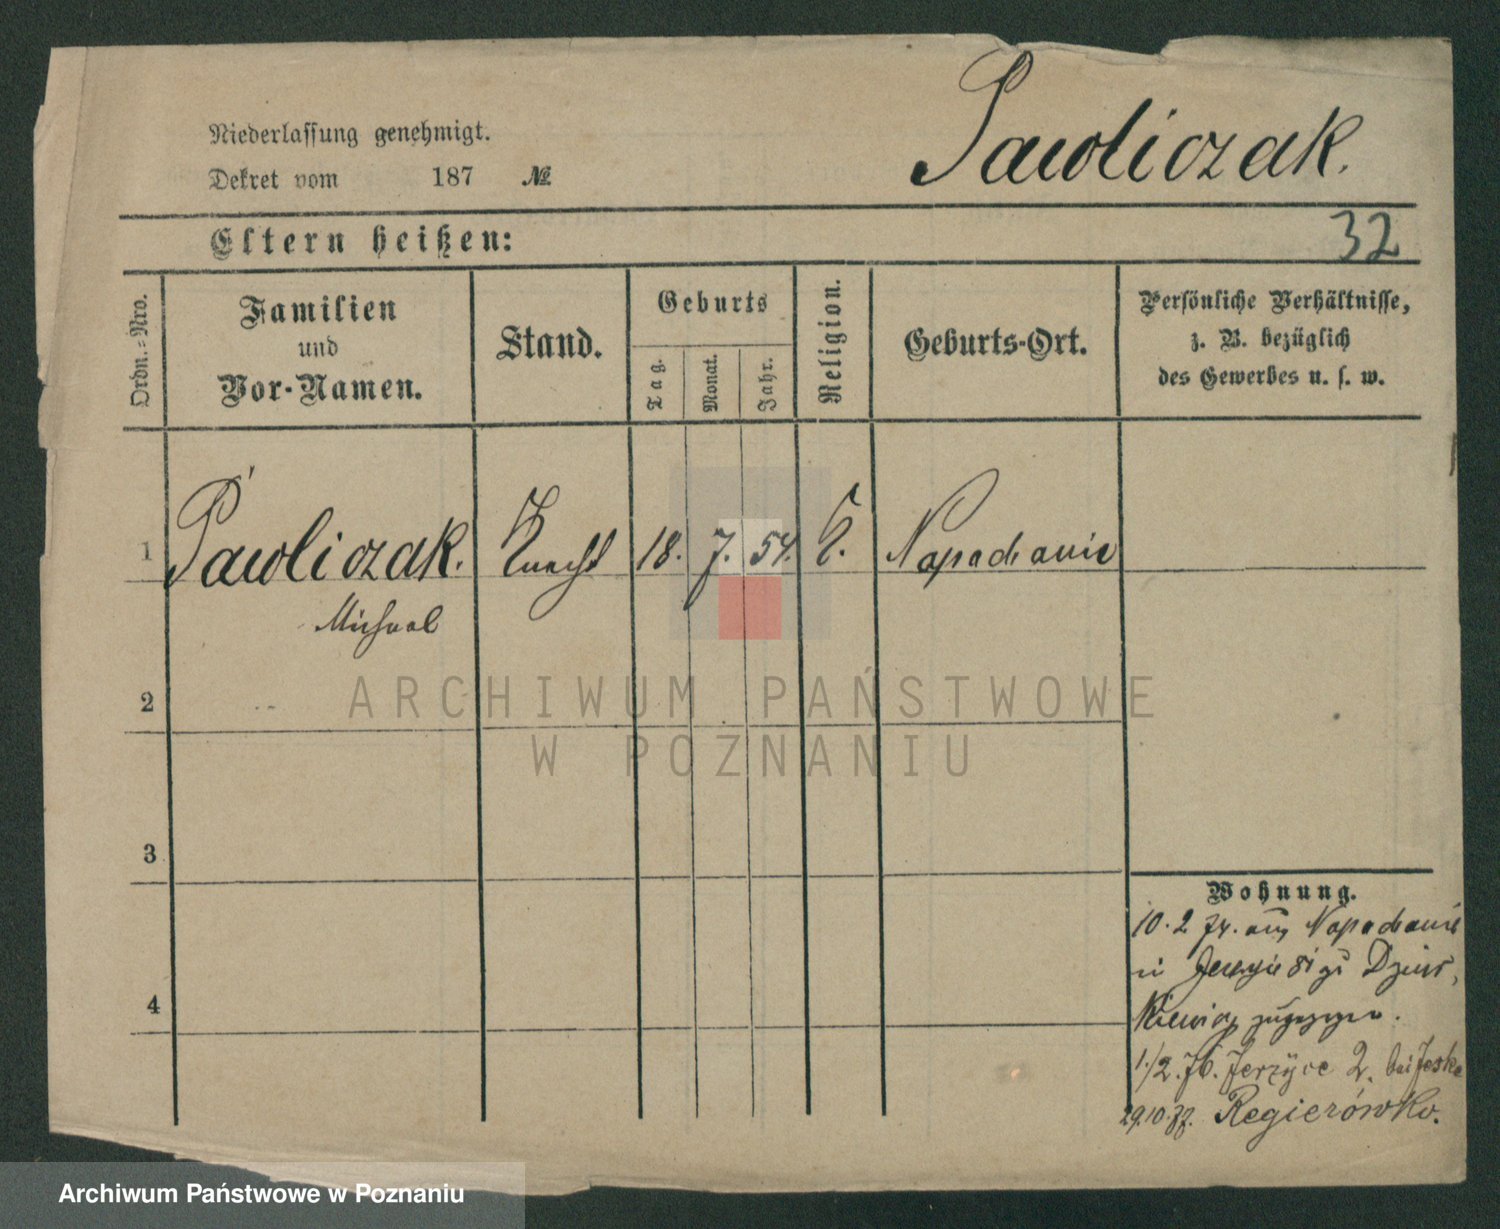 Pawliczak.
Niederlassung genehmigt.
Dekret vom 187 №
Eltern heißen:
32
Ordn.-Nro.
Familien
und
Vor-Namen.
Stand.
Geburts
Tag.
Monat.
Jahr.
Religion.
Geburts-Ort.
Persönliche Verhältnisse,
z. B. bezüglich
des Gewerbes u. s. w.
1 Pawliczak. Knecht 18. 7. 54. Napachanie
Michael
2
ARCHIWUM PAŃSTWOWE
W POZNANIU
3
Wohnung.
10. 2 74. aus Napachanie
in
zugezogen.
1./2. 76. Jerzyce 2. bei Jeske
29.10.77. Regierówko.
4
Archiwum Państwowe w Poznaniu